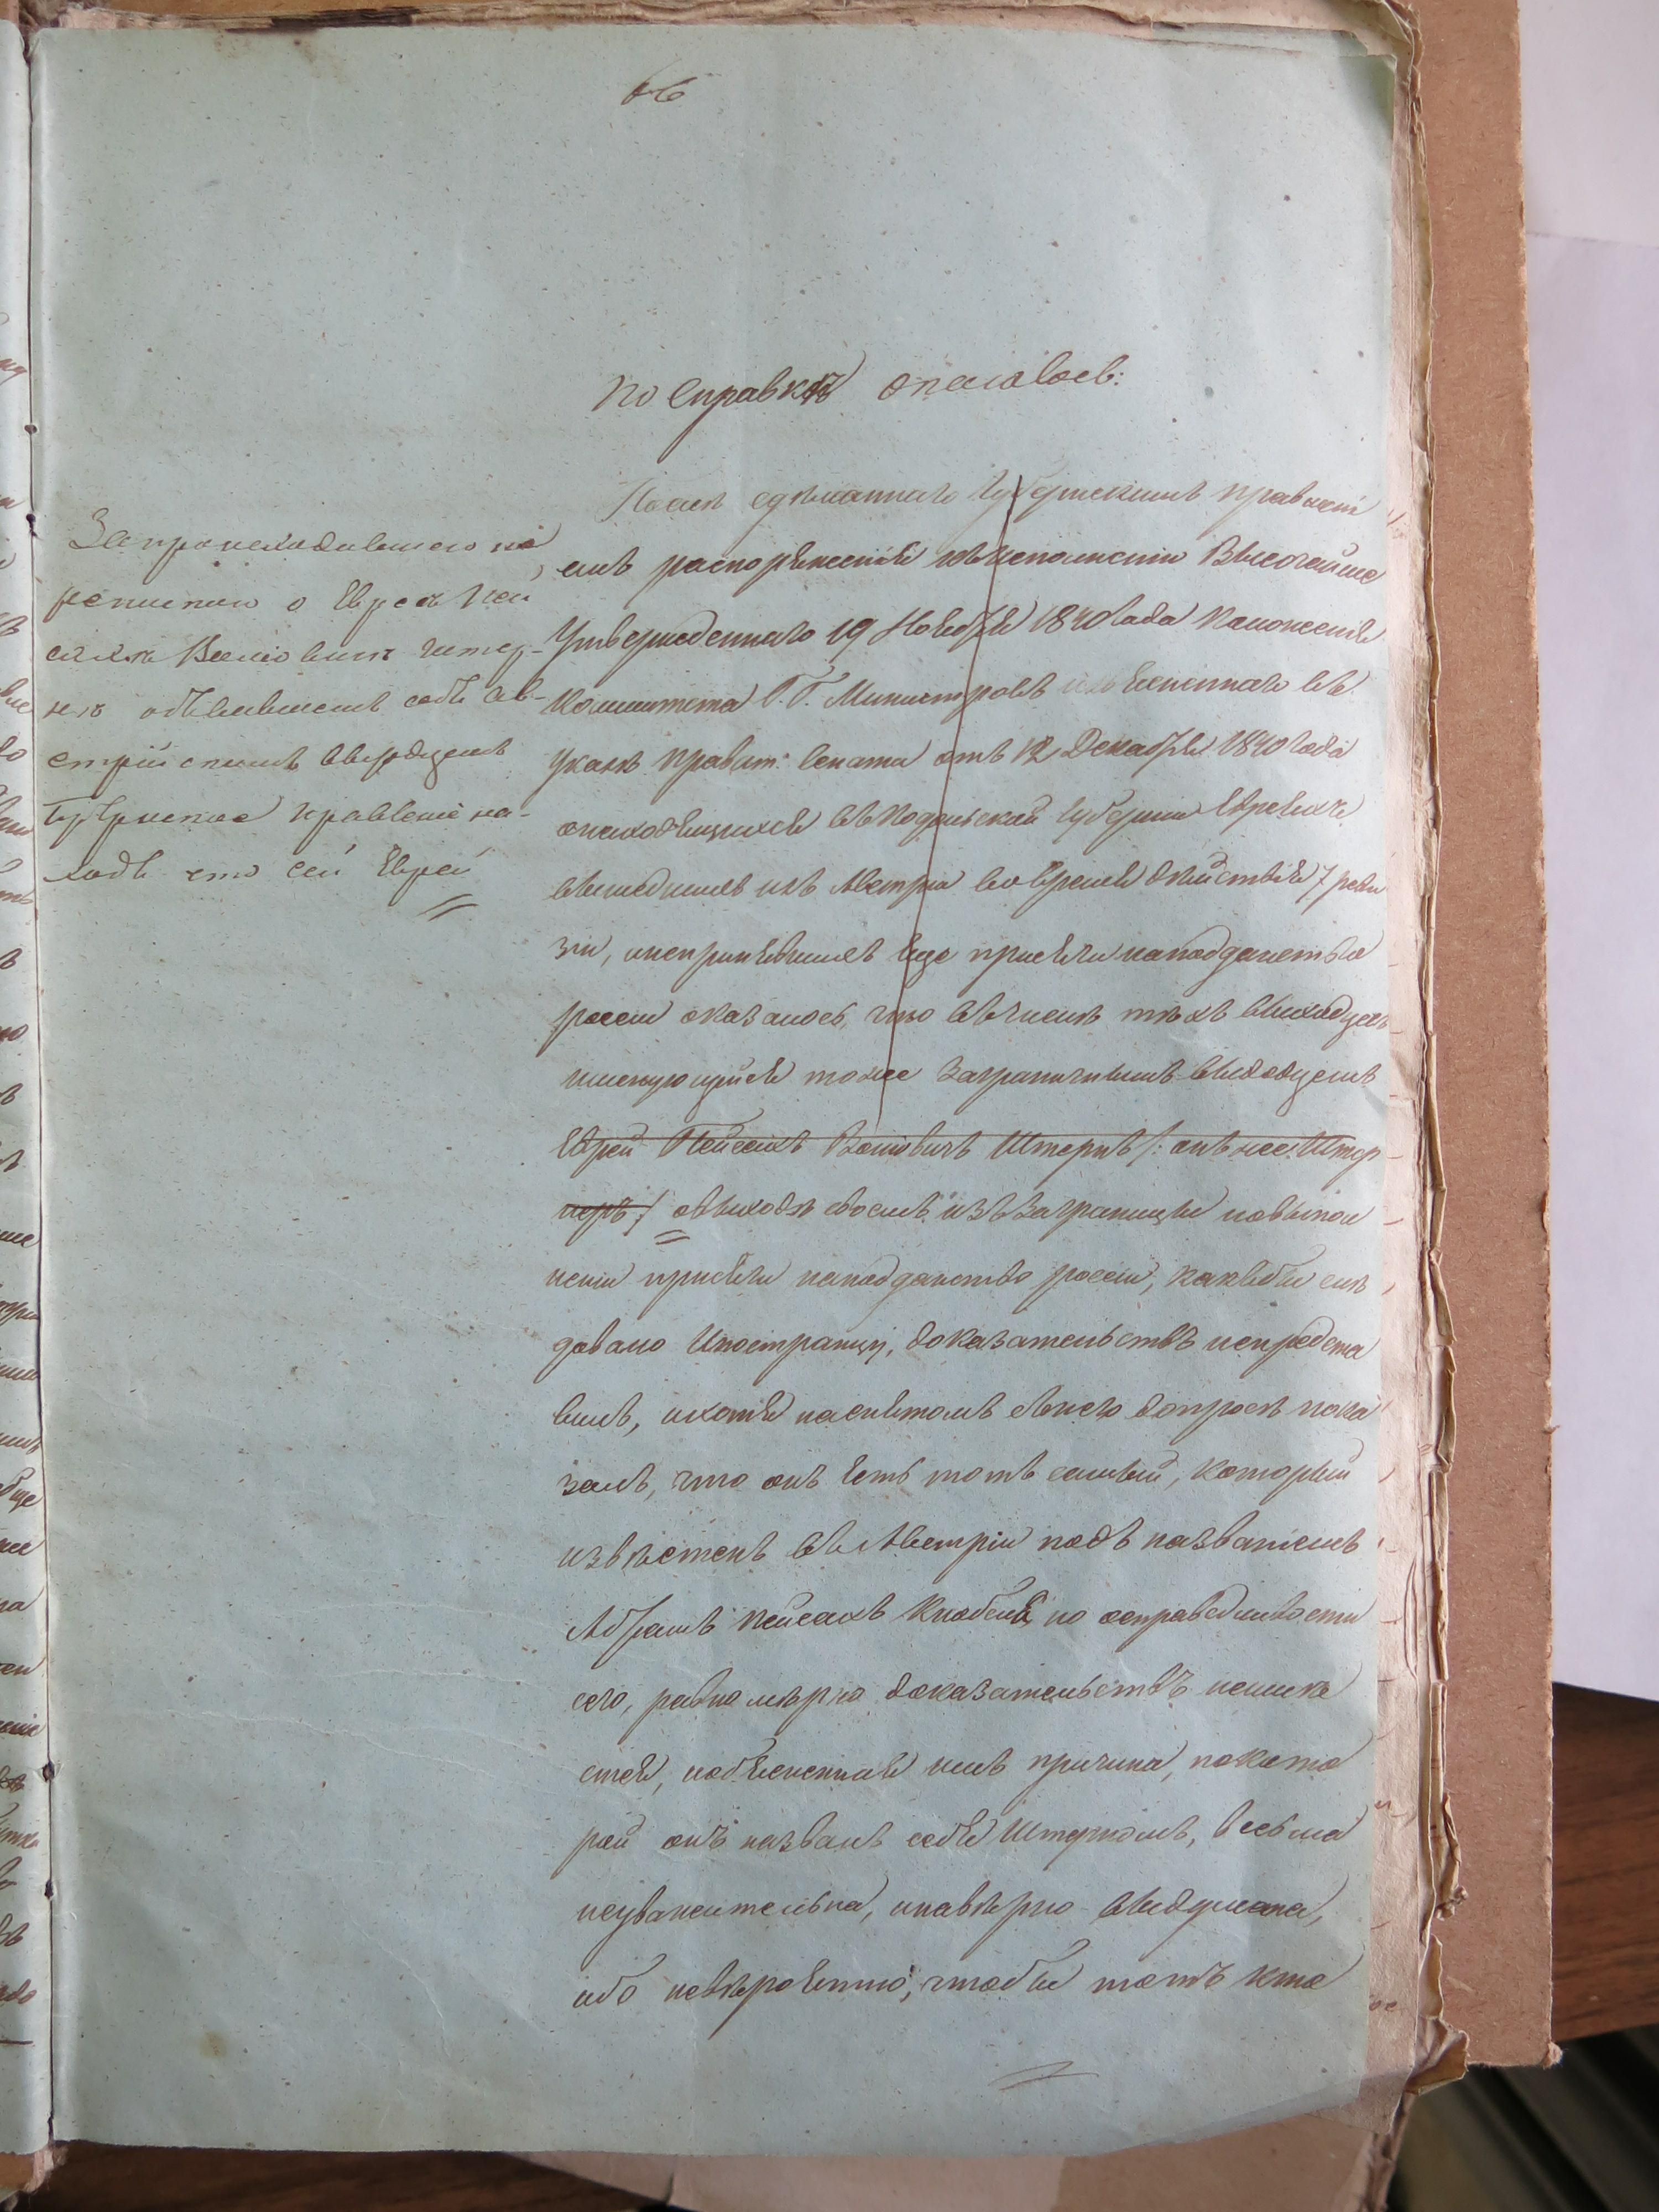 По Справкѣ оказалось:
Запроисходившею пе
репискою о Евреѣ Пей
сахѣ Вольковичѣ Штер-
нѣ объявившемъ себя Ав-
стрійскимъ выходцемъ
Губернское Правленіе на-
ходя что сей Еврей
Послѣ сдѣланнаго Губернскимъ правлені
емъ распоряженія поисполненію Высочайше
Утвержденнаго 19 Ноября 1840 Года Положенія
Комитета Г.Г. Министровъ изъясненнаго въ
указѣ Правит: Сената отъ 12 Декабря 1840 года
онаходящихся въ Подольской Губерніи Евреяхъ
вышедшихъ изъ Австріи во время дѣйствія 7 реви
зіи, инепринявшихъ еще присяги наподданство
россіи оказалось, что въ числѣ тѣхъ выходцевъ
именующійся тоже заграничнымъ выходцемъ
Еврей Пейсахъ Вольковичъ Штернъ /: онъ же Штер
неръ :/ овыходѣ своемъ изъ заграницы иовыпол
неніи присяги наподданство россіи, какъ бы слѣ
довало Иностранцу, доказательствъ непредста
вилъ, ихотя наснятомъ съ него допросѣ пока
залъ, что онъ есть тотъ самый, который
извѣстенъ въ Австріи подъ названіемъ
Абрамъ Пейсахъ но осправедливости
сего, равномѣрно доказательствъ неимѣе
тся, иобъясненная имъ причина, покото
рой онъ назвалъ себя Штерномъ, весьма
неуважительна, инавѣрно выдумана,
ибо невѣроятно, чтобы тотъ кто